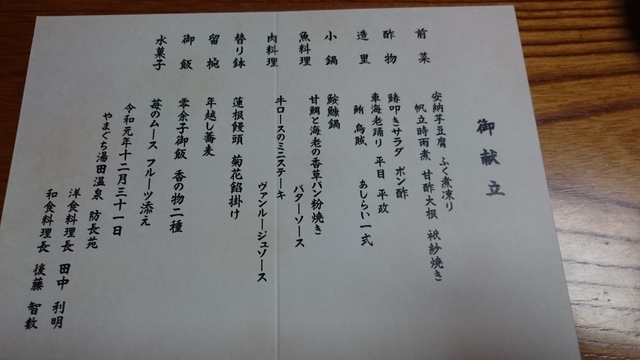 御献立
前菜 安納芋豆腐 ふく煮凍り
帆立時雨煮 甘酢大根 袱紗焼き
酢物 鰭叩きサラダ ポン酢
造里 車海老踊り 平目 平政
鮪 烏賊 あしらい一式
小鍋 鮟鱇鍋
魚料理 甘鯛と海老の香草パン粉焼き
バターソース
肉料理 牛ロースのミニステーキ
ヴァンルージュソース
替り鉢 蓮根饅頭 菊花餡掛け
留椀 年越し蕎麦
御飯 零余子御飯 香の物二種
水菓子 苺のムース フルーツ添え
令和元年十二月三十一日
やまぐち湯田温泉 防長苑
洋食料理長 田中 利明
和食料理長 後藤 智数